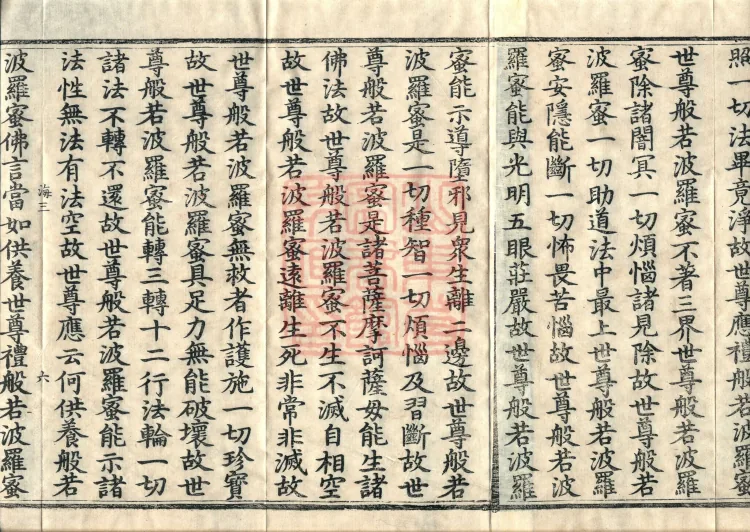 照一切法畢竟淨故世尊應禮般若波羅蜜
世尊般若波羅蜜不著三界世尊般若波羅
蜜除諸闇冥一切煩惱諸見除故世尊般若
波羅蜜一切助道法中最上世尊般若波羅
蜜安隱能斷一切怖畏苦惱故世尊般若波
羅蜜能與光明五眼莊嚴故世尊般若波羅
蜜能示導墮邪見衆生離二邊故世尊般若
波羅蜜是一切種智一切煩惱及習斷故世
尊般若波羅蜜是諸菩薩摩訶薩母能生諸
佛法故世尊般若波羅蜜不生不滅自相空
故世尊般若波羅蜜遠離生死非常非滅故
世尊般若波羅蜜無救者作護施一切珍寶
故世尊般若波羅蜜具足力無能破壞故世
尊般若波羅蜜能轉三轉十二行法輪一切
諸法不轉不還故世尊般若波羅蜜能示諸
法性無法有法空故世尊應云何供養般若
海三 六
波羅蜜佛言當如供養世尊禮般若波羅蜜